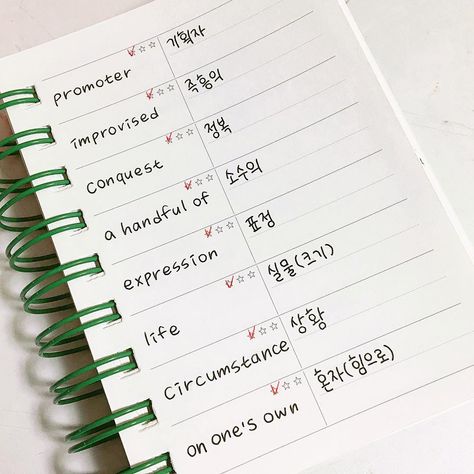 promoter 기획자
improvised 즉흥의
conquest 정복
a handful of 소수의
expression 표정
life 실물(크기)
circumstance 상황
on one's own 혼자(힘으로)